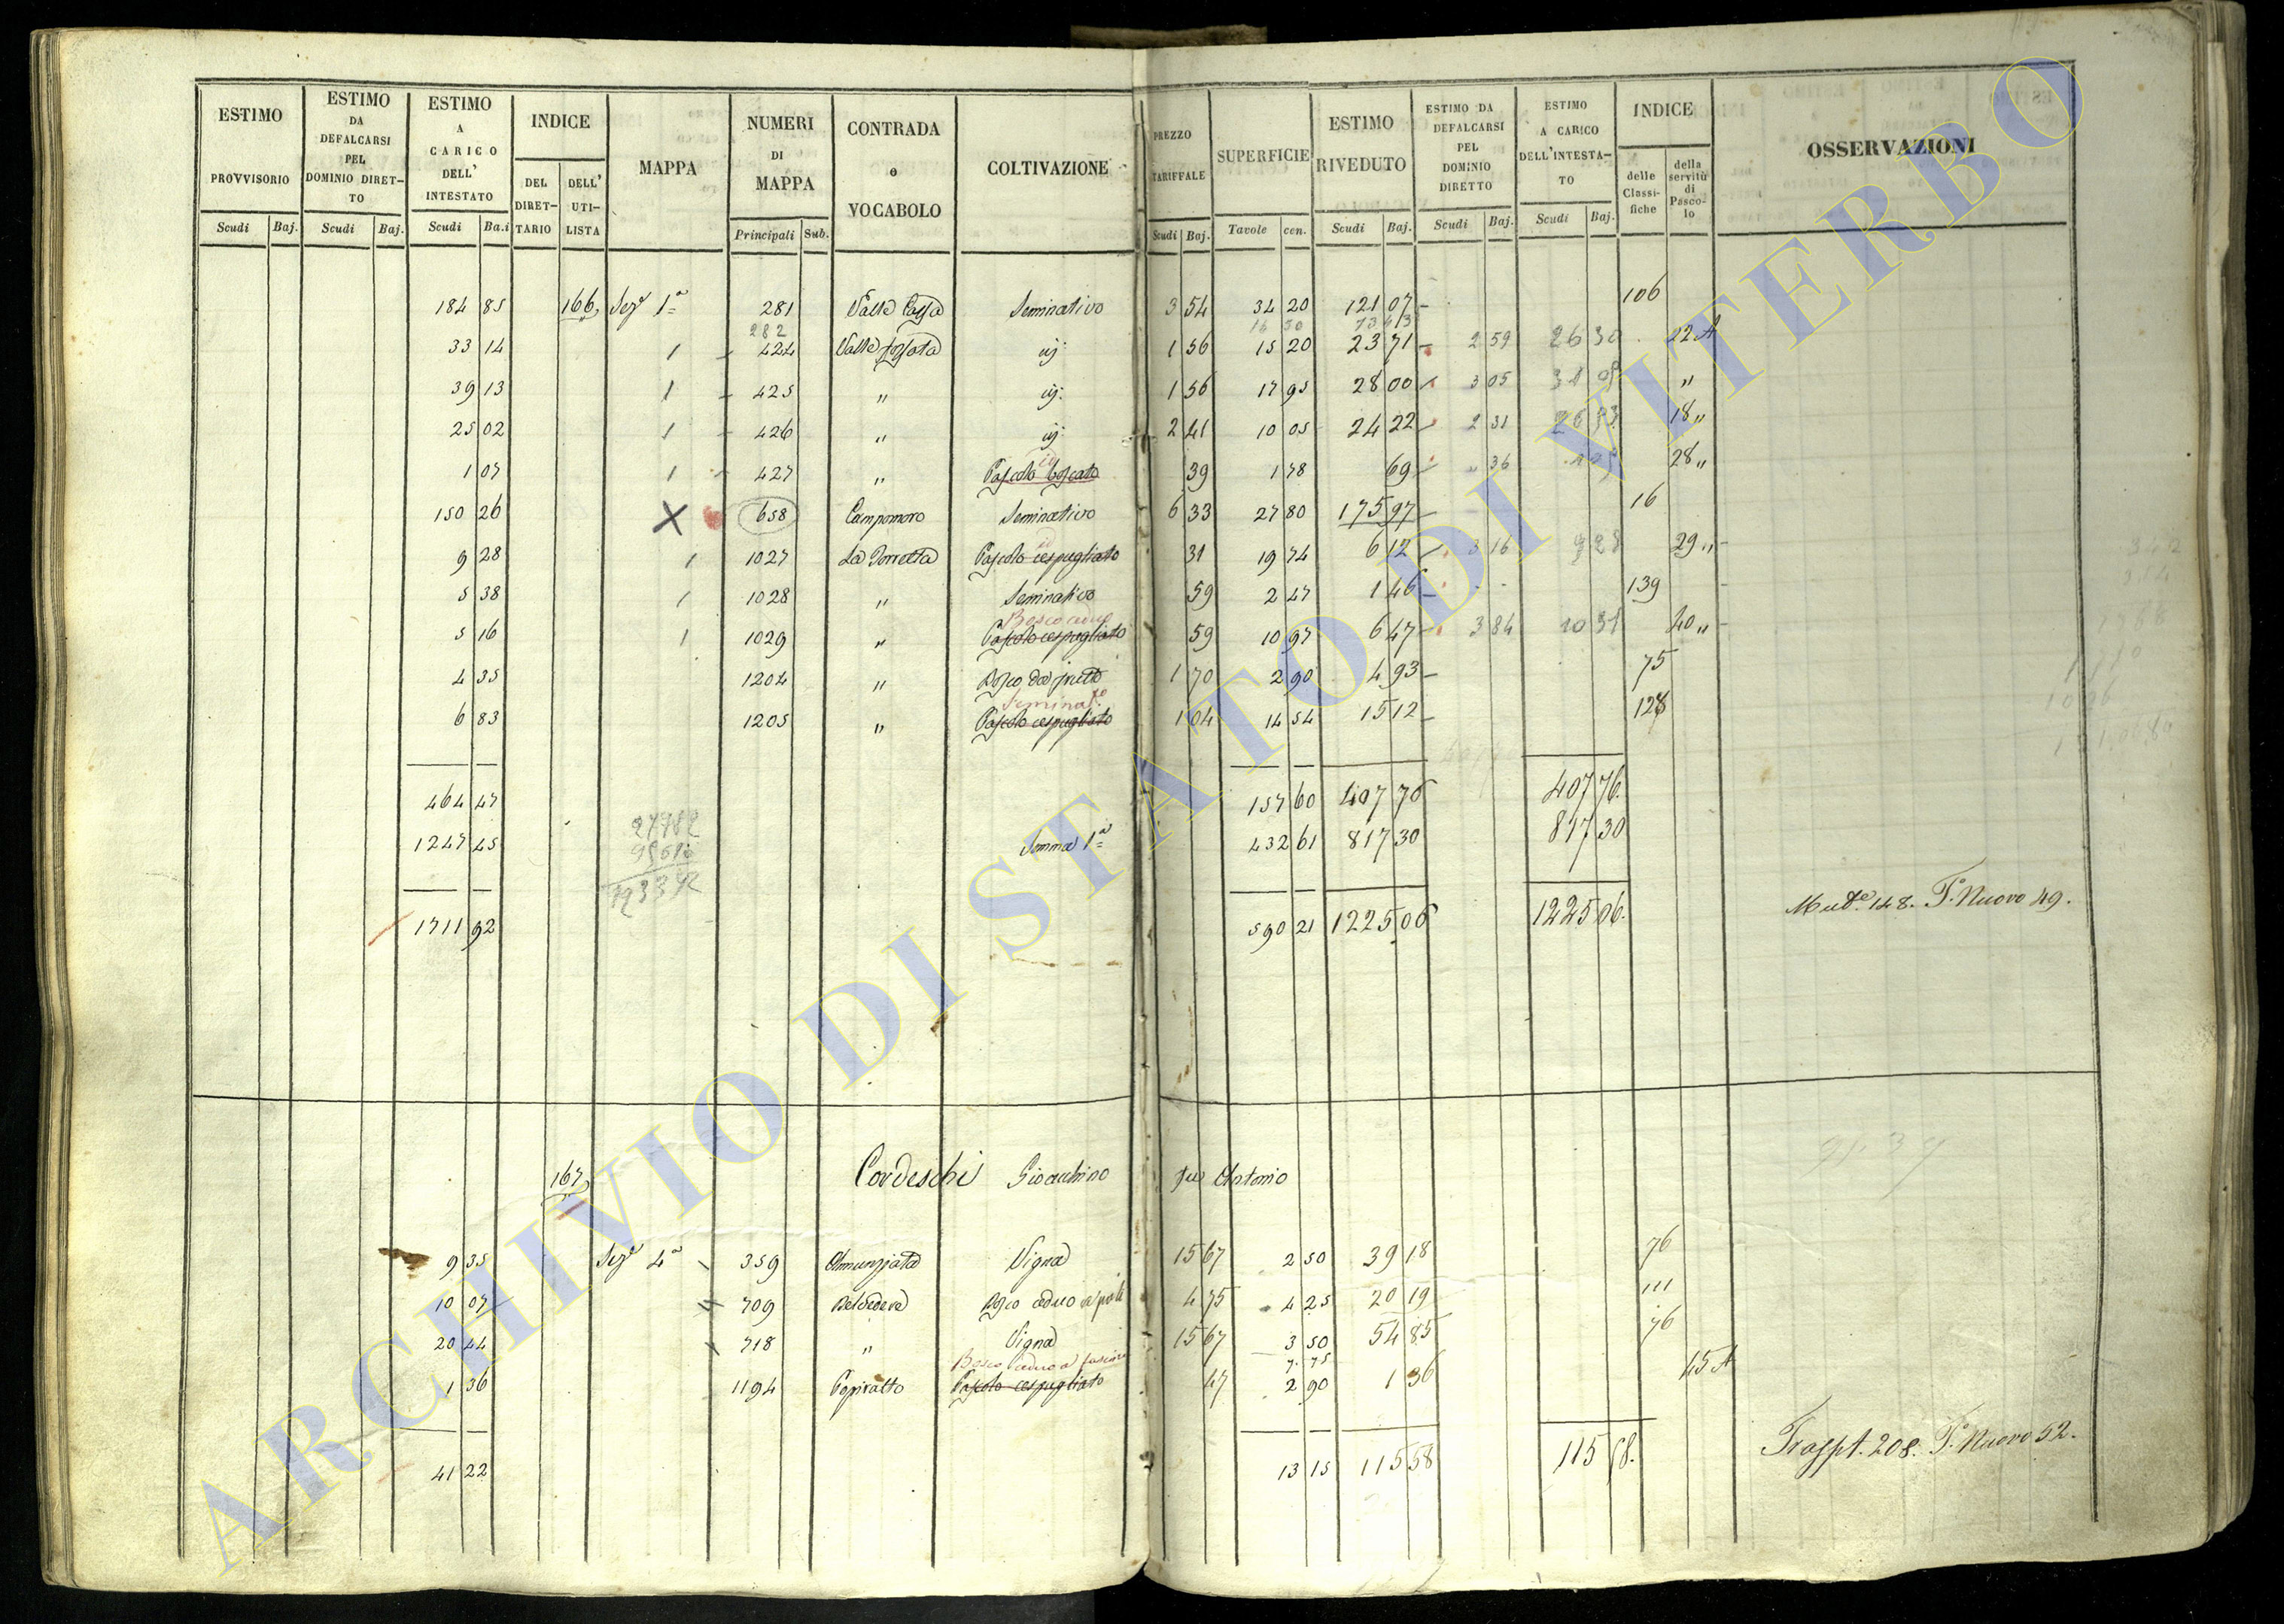 ESTIMO PROVVISORIO
ESTIMO DA DEFALCARSI PEL DOMINIO DIRET-TO
ESTIMO A CARICO DELL' INTESTATO
INDICE
DEL DIRET-TARIO
DELL' UTI-LISTA
MAPPA
NUMERI DI MAPPA
CONTRADA o VOCABOLO
COLTIVAZIONE
PREZZO TARIFFALE
SUPERFICIE
ESTIMO RIVEDUTO
ESTIMO DA DEFALCARSI PEL DOMINIO DIRETTO
ESTIMO A CARICO DELL'INTESTA-TO
INDICE
delle Classi-fiche
della servitù di Pasco-lo
OSSERVAZIONI
Scudi Baj. Scudi Baj. Scudi Ba.i Principali Sub. Scudi Baj. Tavole cen. Scudi Baj. Scudi Baj. Scudi Baj.
184 85 166 Seze 1a 281 Seminativo 3 54 34 20 121 07 106
282 16 50
33 14 1 424 1 56 15 20 23 71 2 59 26 30 22 A
39 13 1 425 " 1 56 17 95 28 00 3 05 "
25 02 1 426 " 2 41 10 05 24 22 2 31 18 "
1 07 1 427 " Pascolo boscato 39 1 78 69 " 36 28 "
150 26 X 658 Campomoro Seminativo 6 33 27 80 175 97 16
9 28 1 1027 La Torretta Pascolo cespugliato 31 19 74 6 12 3 16 9 28 29 "
5 38 1 1028 " Seminativo 59 2 47 1 46 139
Bosco ceduo
5 16 1 1029 " Pascolo cespugliato 59 10 97 6 47 3 84 10 31 40 "
4 35 1204 " Bosco da frutto 1 70 2 90 4 93 75
Seminat.
6 83 1205 " Pascolo cespugliato 1 04 14 54 15 12 128
464 47 157 60 407 76 407 76.
1247 45 Somma 1a 432 61 817 30 817 30
1711 92 590 21 1225 06 1225 06.
Mut.e 148. T.o Nuovo 49.
167 Cordeschi Gioacchino fu Antonio
9 35 Seze 4a 359 Annunziata Vigna 15 67 2 50 39 18 76
10 07 709 Belvedere Bosco ceduo 4 75 4 25 20 19 111
20 44 718 " Vigna 15 67 3 50 54 85 76
Bosco ceduo a
1 36 1194 Poggiralto Pascolo cespugliato 47 2 90 1 36 45 A
41 22 13 15 115 58 115 58.
Traspt. 208. T.o Nuovo 52.
ARCHIVIO DI STATO DI VITERBO